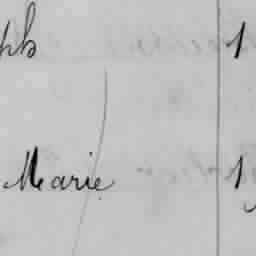 ph 1
Marie 1